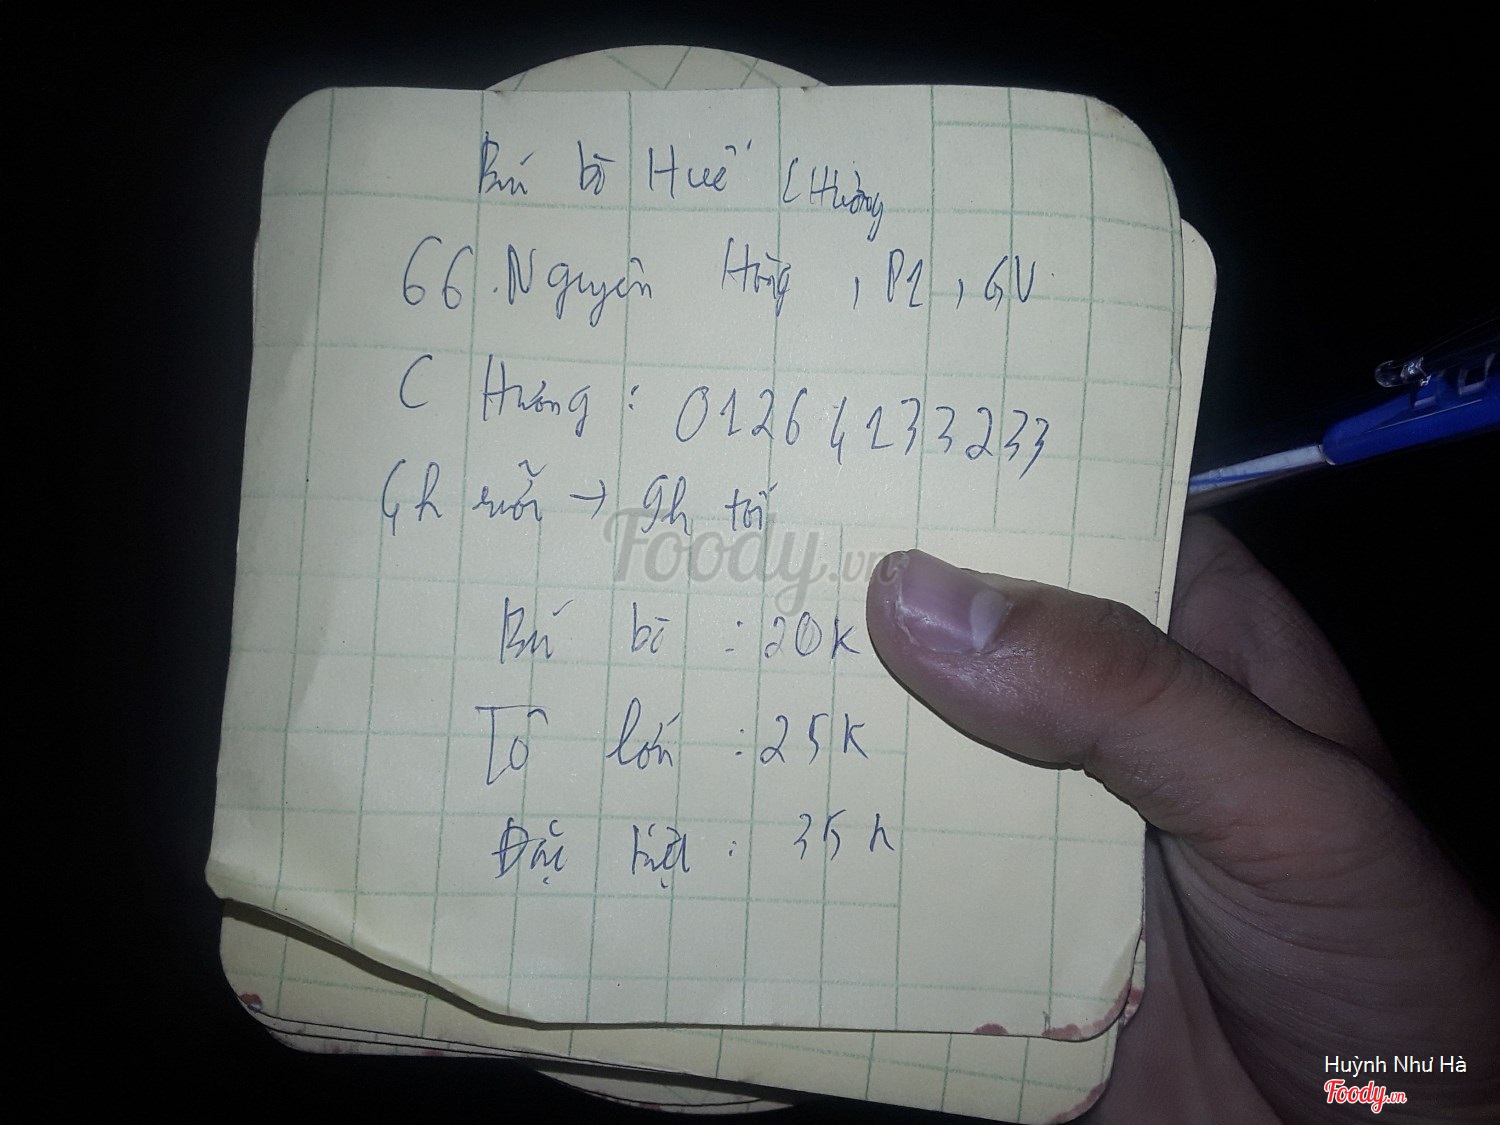 Bún bò Huế C Hường
66 Nguyên Hồng, P1, GV
C Hương: 01264133233
4h rưỡi → 9h tối
Foody.vn
Bún bò: 20K
Tô lớn: 25K
Đặc biệt: 35k
Huỳnh Như Hà
Foody.vn